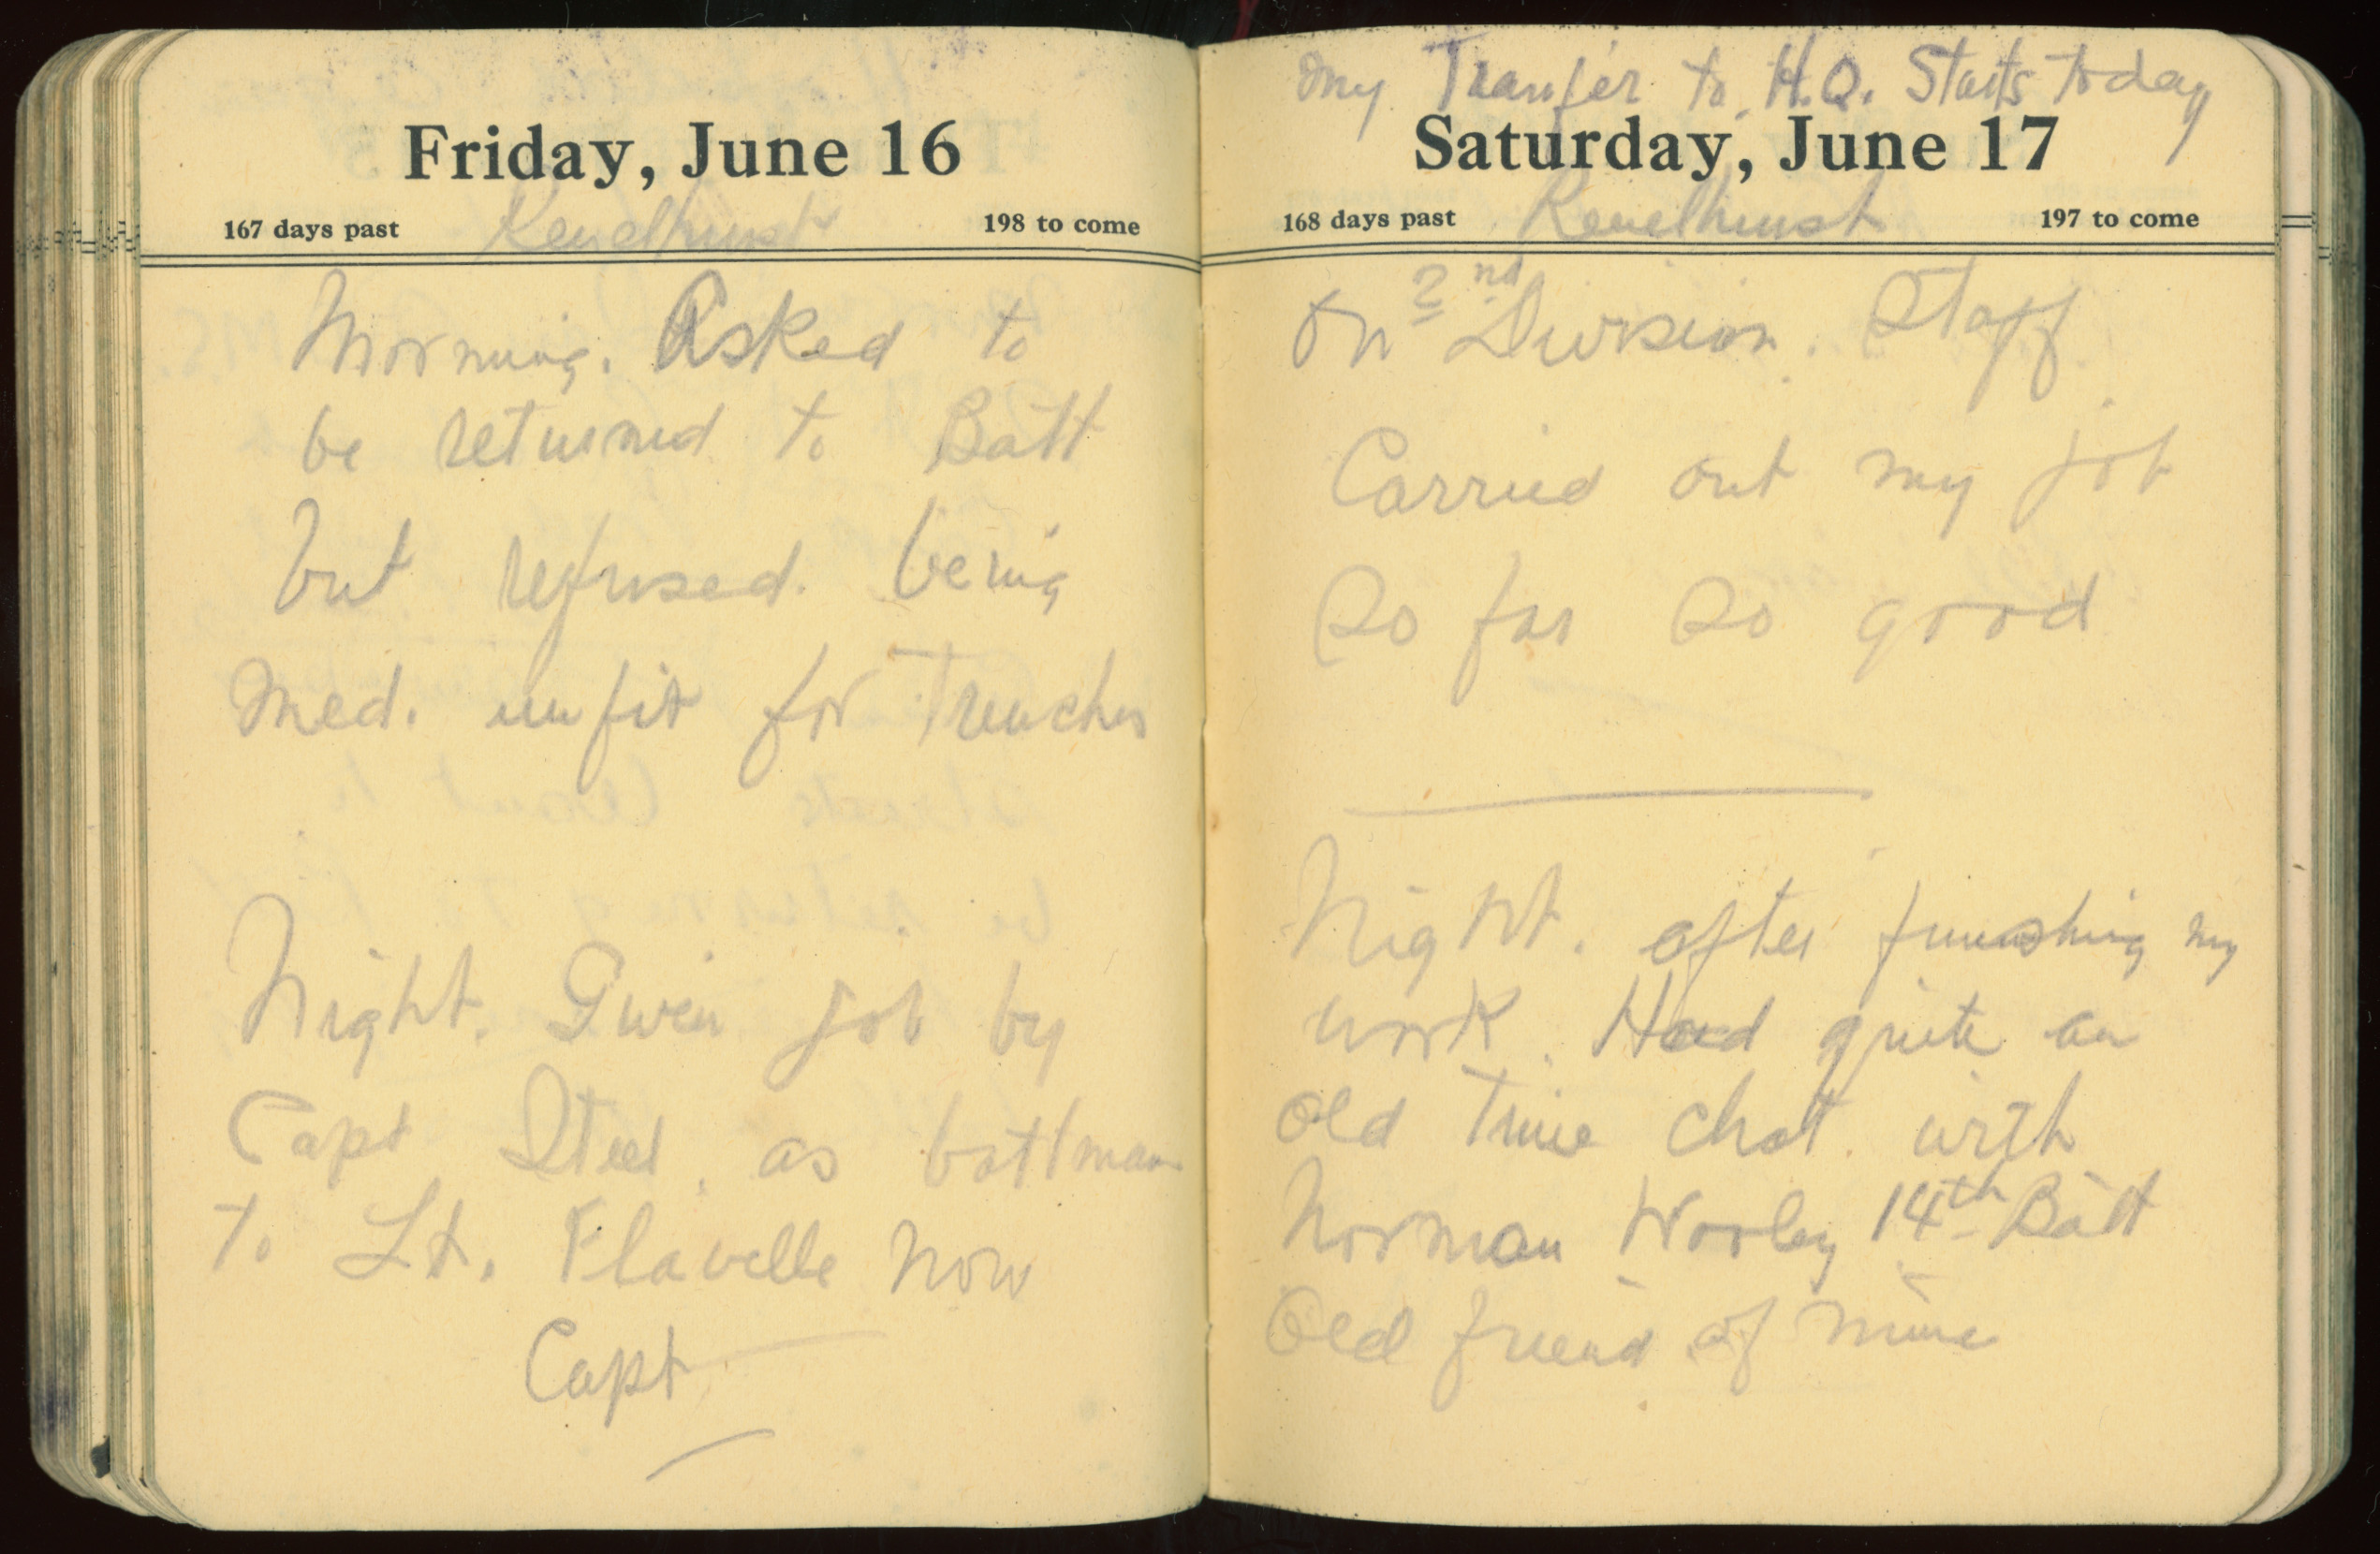 Friday, June 16
167 days past Renelhurst 198 to come
Morning. Asked to
be returned to Batt
but refused. being
Med. unfit for Trenches
Night. Given job by
Capt Steel, as battman
To Lt. Flavelle now
Capt
My Tranfer to H.Q. Starts today
Saturday, June 17
168 days past Renelhurst 197 to come
On 2nd Division. Staff
Carried out my job
So far So good
Night. after finnishing my
work. Had quite an
old Time chat. with
Norman Worley 14th Batt
Old friend of mine